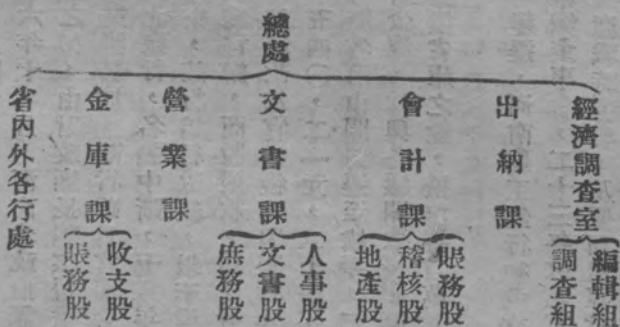 總處
經濟調查室
編輯組
調查組
出納課
會計課
賬務股
稽核股
地產股
文書課
人事股
文書股
庶務股
營業課
金庫課
收支股
賬務股
省內外各行處